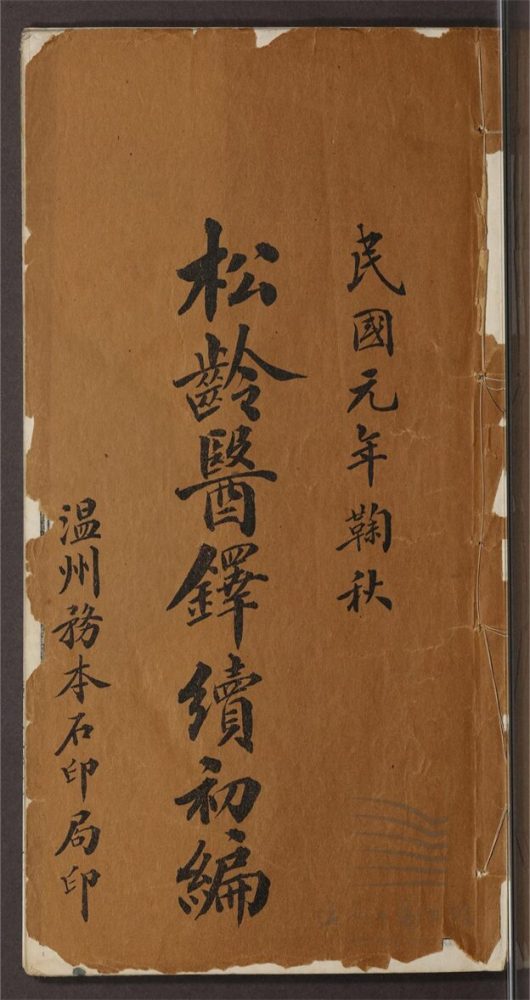 民國元年鞠秋
松齡醫鐸續初編
温州務本石印局印